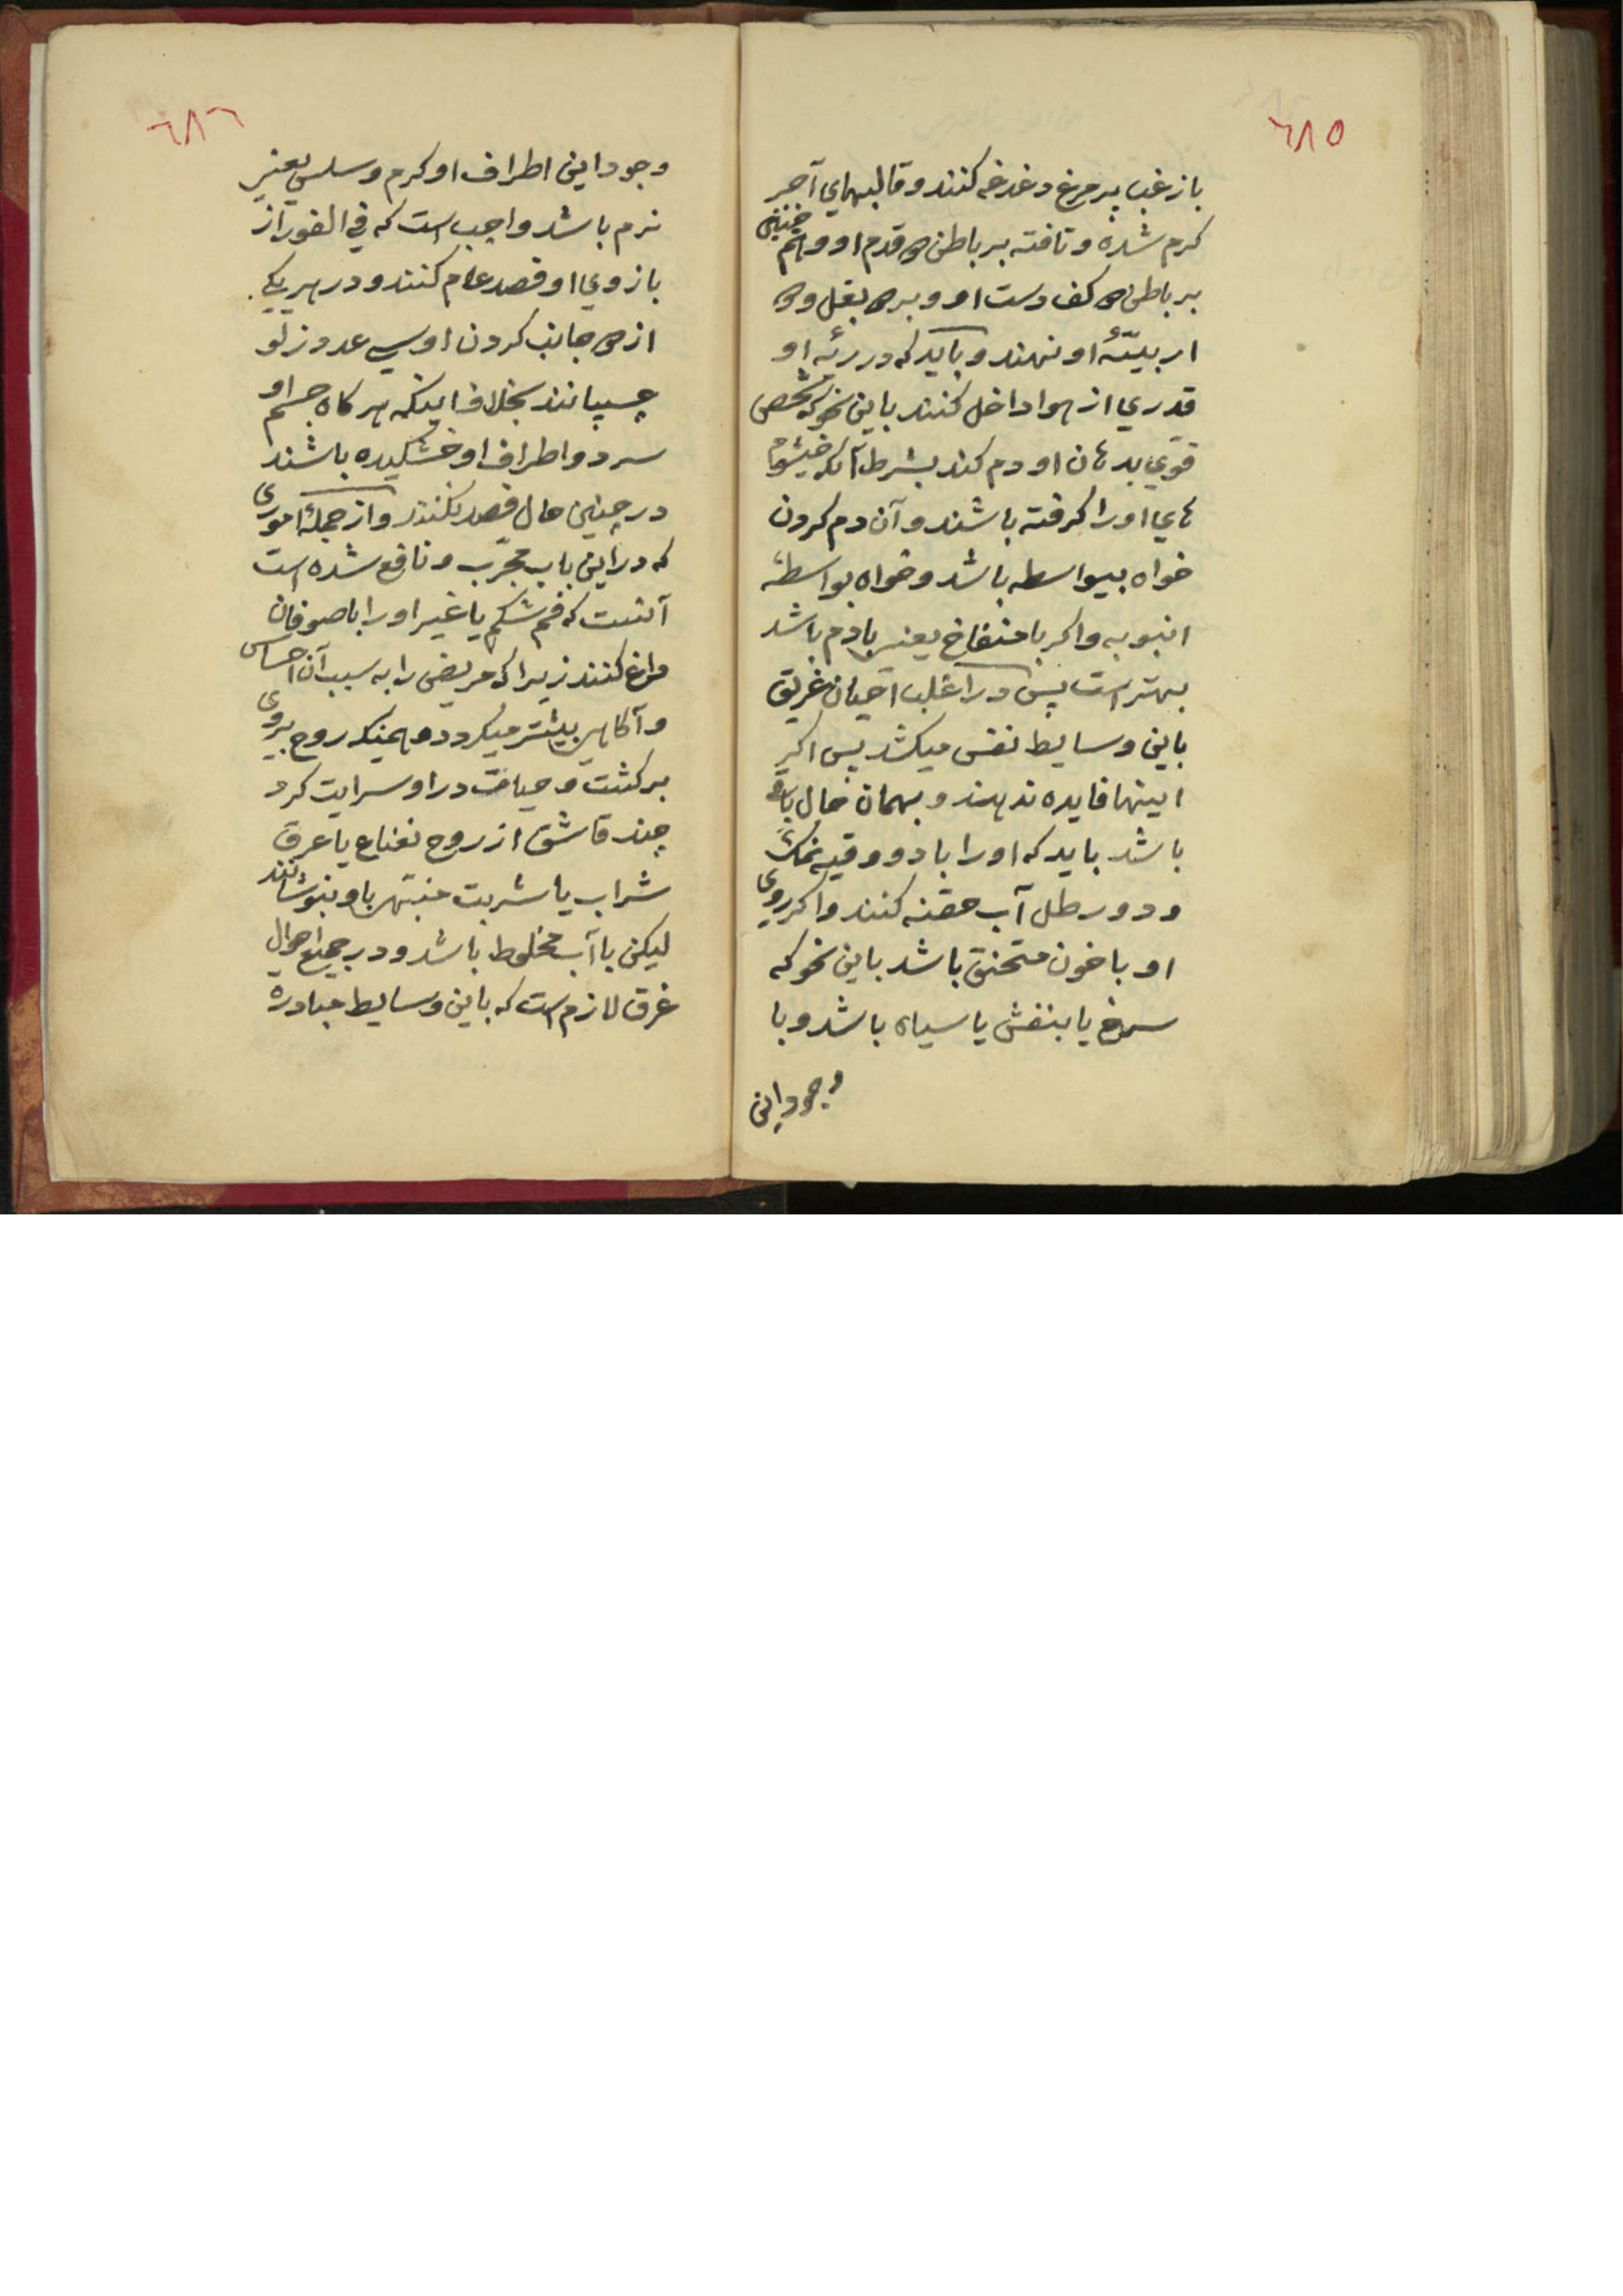 ٦٨٥
باز غب پر مرغ دغدغه کنند و قالبهای آجر
کرم شده و تافته بر باطن هر قدم او و همچنین
بر باطن هر کف دست او و بر هر بغل و هر
اربیّۀ او نهند و باید که در رئه او
قدری از هوا داخل کنند باین نحو که شخصی
قوی بدهان او دم کند بشرط آنکه خیشوم
های او را کرفته باشند و آن دم کردن
خواه بیواسطه باشد و خواه بواسطهٔ
انبوبه و اکر با منفاخ یعنی با دم باشد
بهتر است پس در اغلب احیان غریق
باین وسایط نفس میکشد پس اکر
اینها فایده ندهند و بهمان حال باقی
باشد باید که او را با دو وقیه نمک
و دو رطل آب حقنه کنند و اکر روی
او با خون متحنق باشد باین نحو که
سرخ یا بنفش یا سیاه باشد و با
وجود این
٦٨٦
وجود این اطراف او کرم و سلس یعنی
نرم باشد واجب است که فی الفور از
بازوی او فصد عام کنند و در هر یکی
از هر جانب کردن او سی عدد زلو
چسپانند بخلاف اینکه هر کاه جسم او
سرد و اطراف او خشکیده باشند
در چنین حال فصد نکنند و از جملۀ اموری
که در این باب مجرّب و نافع شده است
آنست که فم شکم یا غیر او را با صوفان
داغ کنند زیرا که مریض را به سبب آن احساس
و آکاهی بیشتر میکردد و همینکه روح بروی
برکشت و حیات در او سرایت کرد
چند قاشق از روح نعناع یا عرق
شراب یا شربت منبّهی باو بنوشانند
لیکن با آب مخلوط باشد و در جمیع احوال
غرق لازم است که باین وسایط مبادره